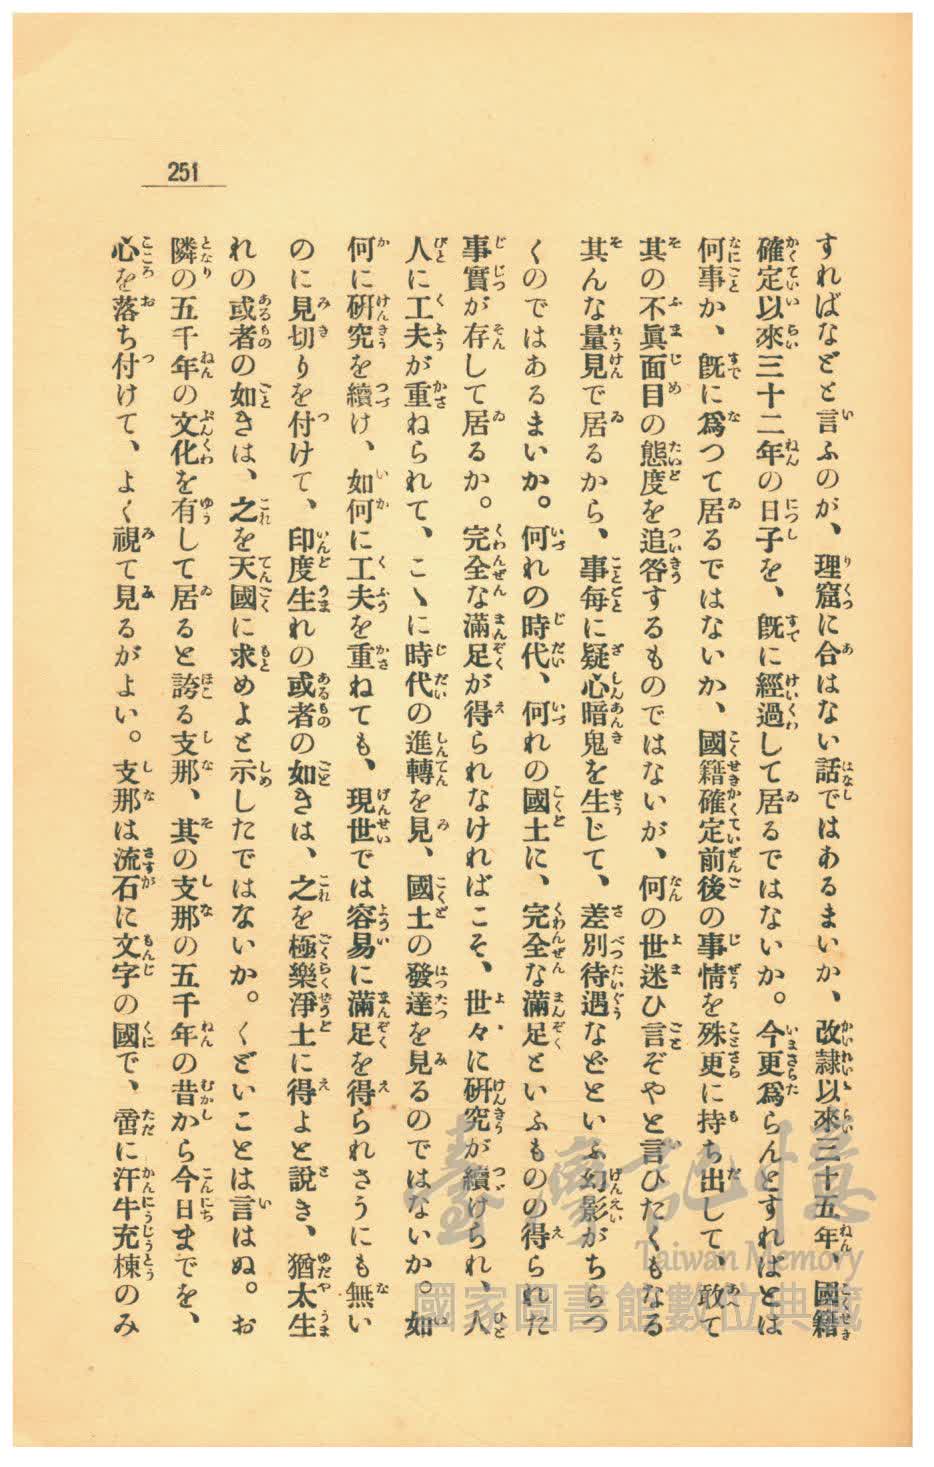 251
すればなどと言ふのが、理窟に合はない話ではあるまいか、改隷以來三十五年、國籍
確定以來三十二年の日子を、既に經過して居るではないか。今更爲らんとすればとは
何事か、既に爲つて居るではないか、國籍確定前後の事情を殊更に持ち出して、敢て
其の不眞面目の態度を追咎するものではないが、何の世迷ひ言ぞやと言ひたくもなる
其んな量見で居るから、事每に疑心暗鬼を生じて、差別待遇などといふ幻影がちらつ
くのではあるまいか。何れの時代、何れの國土に、完全な滿足といふものの得られた
事實が存して居るか。完全な滿足が得られなければこそ、世々に硏究が續けられ、人
人に工夫が重ねられて、こゝに時代の進轉を見、國土の發達を見るのではないか。如
何に硏究を續け、如何に工夫を重ねても、現世では容易に滿足を得られさうにも無い
のに見切りを付けて、印度生れの或者の如きは、之を極樂淨土に得よと說き、猶太生
れの或者の如きは、之を天國に求めよと示したではないか。くどいことは言はぬ。お
隣の五千年の文化を有して居ると誇る支那、其の支那の五千年の昔から今日までを、
心を落ち付けて、よく視て見るがよい。支那は流石に文字の國で、啻に汗牛充棟のみ
臺灣記憶
Taiwan Memory
國家圖書館數位典藏